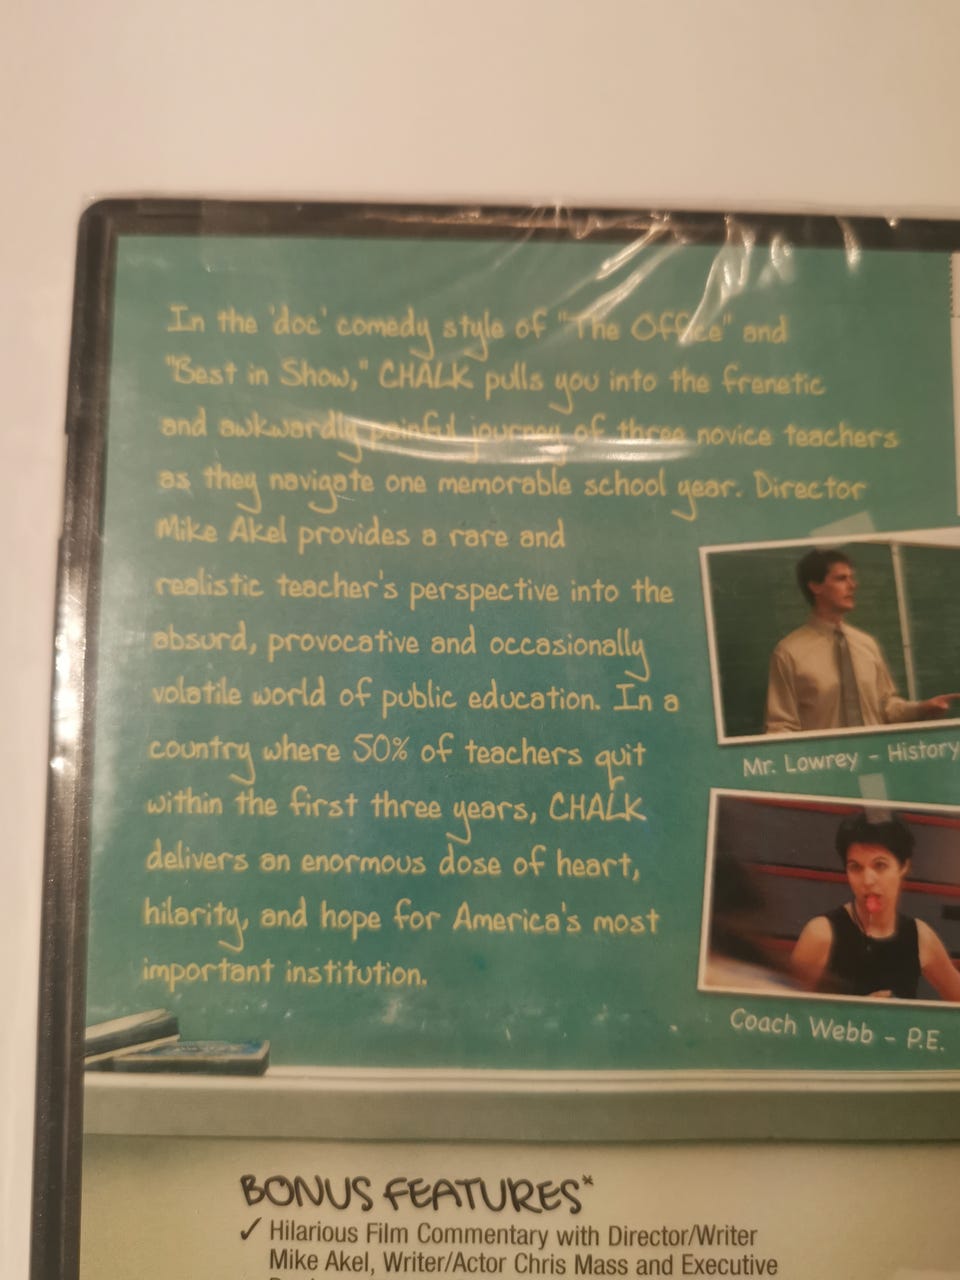 In the 'doc' comedy style of "The Office" and
"Best in Show," CHALK pulls you into the frenetic
and awkwardly painful journey of three novice teachers
as they navigate one memorable school year. Director
Mike Akel provides a rare and
realistic teacher's perspective into the
absurd, provocative and occasionally
volatile world of public education. In a
country where 50% of teachers quit
within the first three years, CHALK
delivers an enormous dose of heart,
hilarity, and hope for America's most
important institution.
Mr. Lowrey - History
Coach Webb - P.E.
BONUS FEATURES*
✓ Hilarious Film Commentary with Director/Writer
Mike Akel, Writer/Actor Chris Mass and Executive